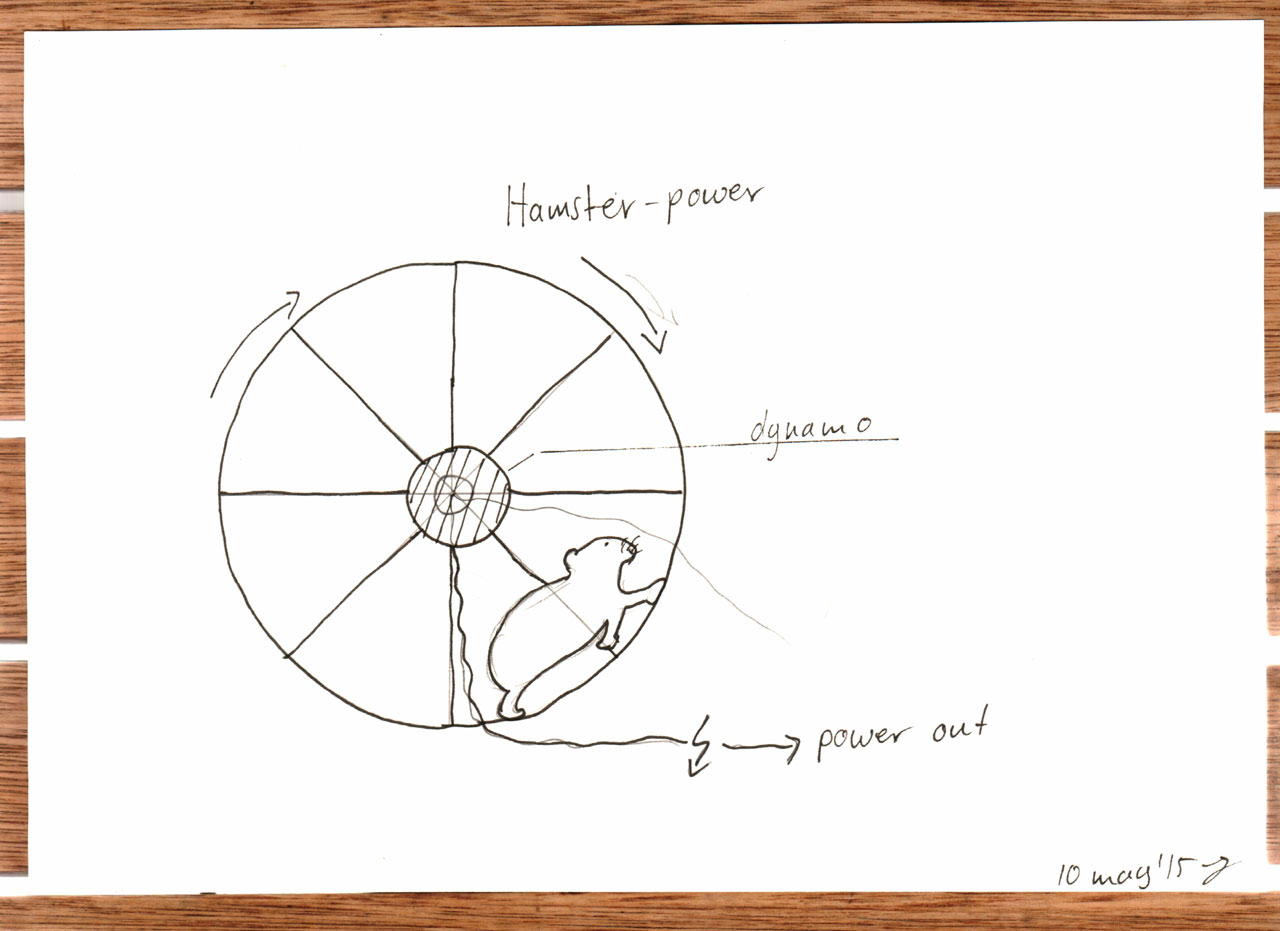 Hamster-power
dynamo
power out
10 may '15